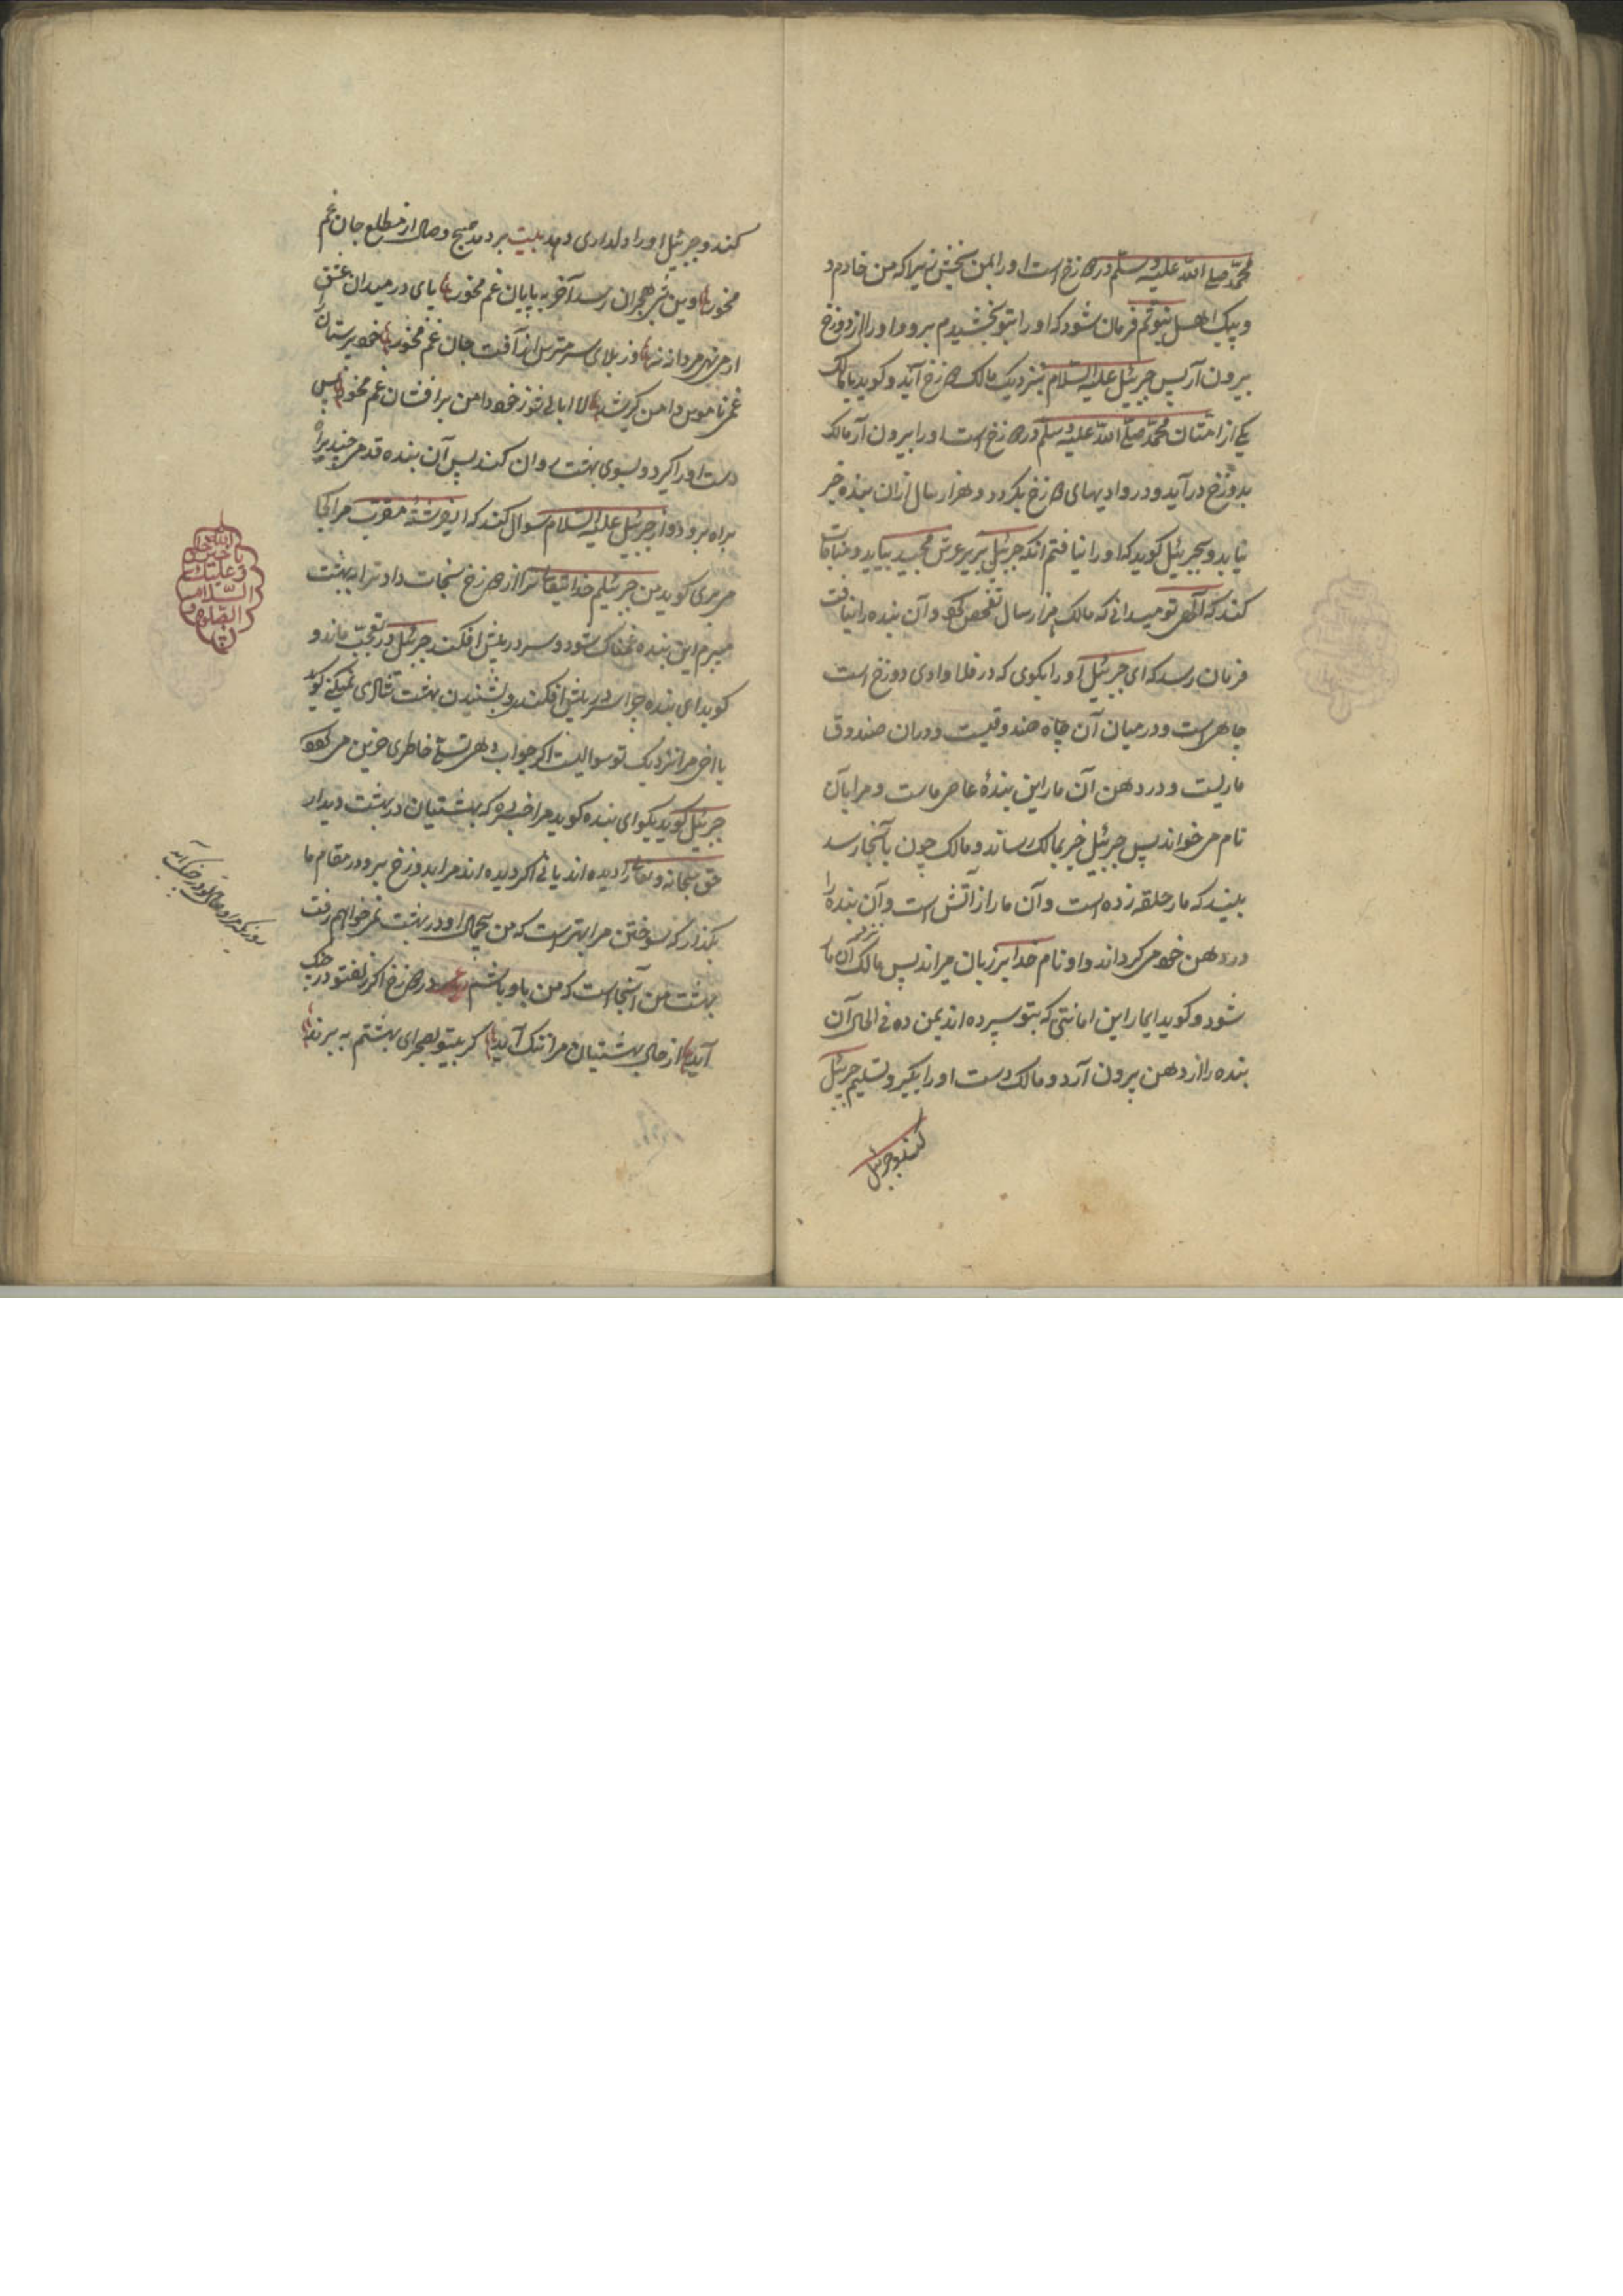 محمد صلی الله علیه وسلم در دوزخ است اورا بمن بخش زیراکه من خادم و
و پیک اهل نبوتم فرمان شود که اورا بتو بخشیدم برو و اورا از دوزخ
بیرون آر پس جبرئیل علیه السلام بنزدیک مالک دوزخ آید و کوید یا مالک
یکی از امتان محمد صلی الله علیه وسلم در دوزخ است اورا بیرون آر مالک
بدوزخ درآید و در وادیهای دوزخ بکردد و هزار سال ازان بنده خبر
نیابد و بجبرئیل کوید که اورا نیافتم انکه جبرئیل بزیر عرش مجید بیاید و مناجات
کند که الهی تو میدانی که مالک هزار سال تفحص کرد و آن بنده را نیافت
فرمان رسد که ای جبرئیل اورا بکوی که در فلا وادی دوزخ است
چاهی است و در میان آن چاه صندوقیست و دران صندوق
ماریست و در دهن آن مار این بندهٔ عاصی ماست و مرا بآن
نام می خواند پس جبرئیل خبر بمالک رساند و مالک چون بآنجا رسد
بیند که مار حلقه زده است و آن مار از آتش است و آن بنده را
در دهن خود می کرداند و او نام خدا بر زبان میراند پس مالک نزد آن مار
شود و کوید ایمار این امانتی که بتو سپرده اند بمن ده فی الحال آن
بنده را از دهن بیرون آرد و مالک دست اورا بکیرد و تسلیم جبرئیل
کند و جبرئیل
کند و جبرئیل اورا دلداری دهد بیت بر دمد صبح وصال از مطلع جان غم
مخور وین شب هجران رسد آخر به پایان غم مخور پای در میدان عشق
ار می نهی مردانه نه وز بلای سر مترس از آفت جان غم مخور خود پرستان را
غم ناموس دامن کیر شد لا ابالی شو ز خود دامن بر افشان غم مخور پس
دست اورا کیرد و بسوی بهشت روان کند پس آن بنده قدمی چند براه
براه برود و از جبرئیل علیه السلام سوال کند که ای فرشتهٔ مقرب مرا کجا
می بری کوید من جبرئیلم خدایتعالی ترا از دوزخ نجات داد ترا به بهشت
میبرم این بنده غمناک شود و سر در پیش افکند جبرئیل در تعجب ماند و
کوید ای بنده چرا سر در پیش افکندی و بشنیدن بهشت شادی نمیکنی کوید
یا اخی مرا نزدیک تو سوالیست اکر جواب دهی تسلّی خاطری حزین می شود
جبرئیل کوید بکو ای بنده کوید مرا خبر ده که بهشتیان در بهشت دیدار
حق سبحانه و تعالی را دیده اند یا نی اکر دیده اند مرا بدوزخ ببر و در مقام ما
بکذار که سوختن مرا بهتر است که من بیجمال او در بهشت نمی خواهم رفت
بهشت من آنجا است که من باو باشم در دوزخ اکر زلف تو در چنک
آید از حال بهشتیان مرا ننک آید کر بیتو بصحرای بهشتم به برند
یا حبیب الله خذ
و علیک
السلام
الصلوة و